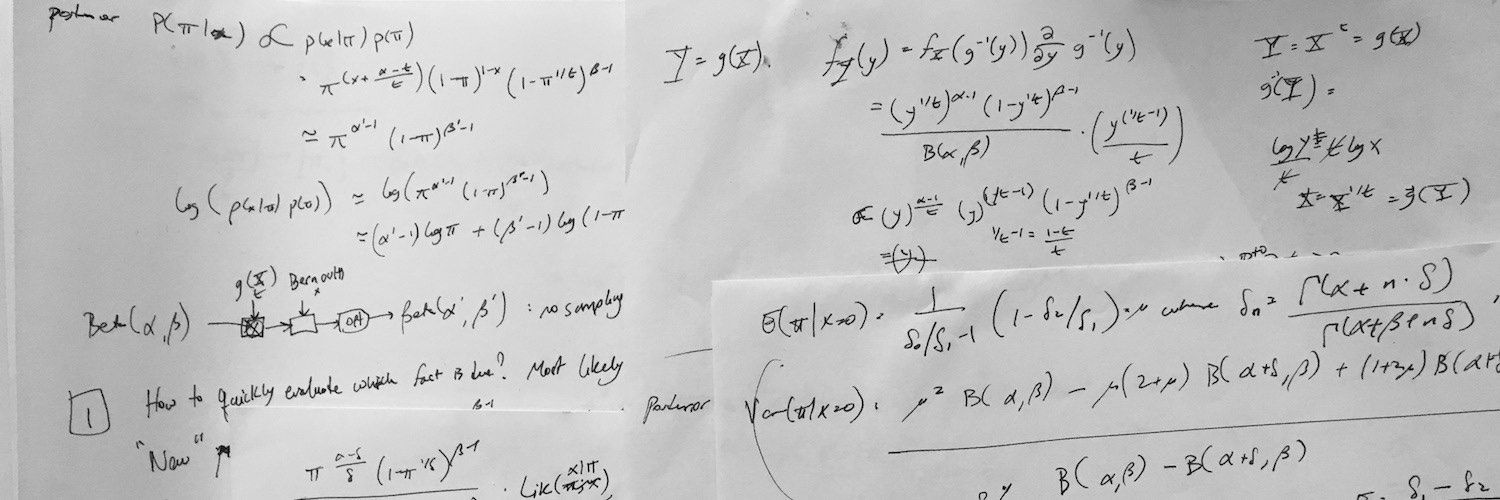 posterior P(π|x) ∝ p(x|π) p(π)
= π^(x + (α-t)/t) (1-π)^(1-x) (1-π^(1/t))^(β-1)
≃ π^(α'-1) (1-π)^(β'-1)
log(p(x|π) p(π)) ≃ log(π^(α'-1) (1-π)^(β'-1))
≃ (α'-1) log π + (β'-1) log (1-π
g(X) Bernoulli
t x
Beta(α,β) → Beta(α',β') : no sampling
1 How to quickly evaluate which fact is due? Most likely
"Now"
β-1
π^((α-δ)/δ) (1-π^(1/δ))^(β-1) · Like(x|π)
Y = g(X). f_Y(y) = f_X(g^-1(y)) ∂/∂y g^-1(y)
= (y^(1/t))^(α-1) (1-y^(1/t))^(β-1) / B(α,β) · (y^(1/t-1) / t)
∝ (y)^((α-1)/t) (y)^(1/t-1) (1-y^(1/t))^(β-1)
1/t-1 = (1-t)/t
=(y)
Y = X^t = g(X)
g^-1(Y) =
log Y = t log X
t
X = Y^(1/t) = g^-1(Y)
E(π|x=0) = 1/(δ0/δ1-1) (1-δ2/δ1) = μ where δn = Γ(α+n·δ) / Γ(α+β+nδ),
Posterior Var(π|x=0) = μ² B(α,β) - μ(2+μ) B(α+δ,β) + (1+2μ) B(α+
B(α,β) - B(α+δ,β)
δ1 - δ2